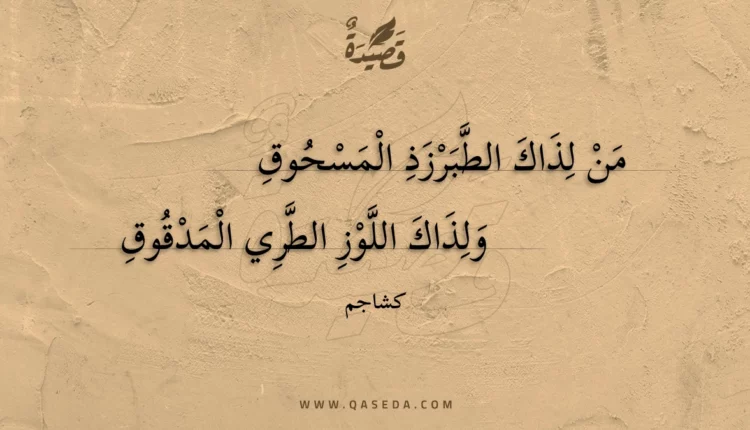 قَصِيْدَةٌ
مَنْ لِذَاكَ الطَّبَرْزَذِ الْمَسْحُوقِ
وَلِذَاكَ اللَّوْزِ الطَّرِي الْمَدْقُوقِ
كشاجم
WWW.QASEDA.COM